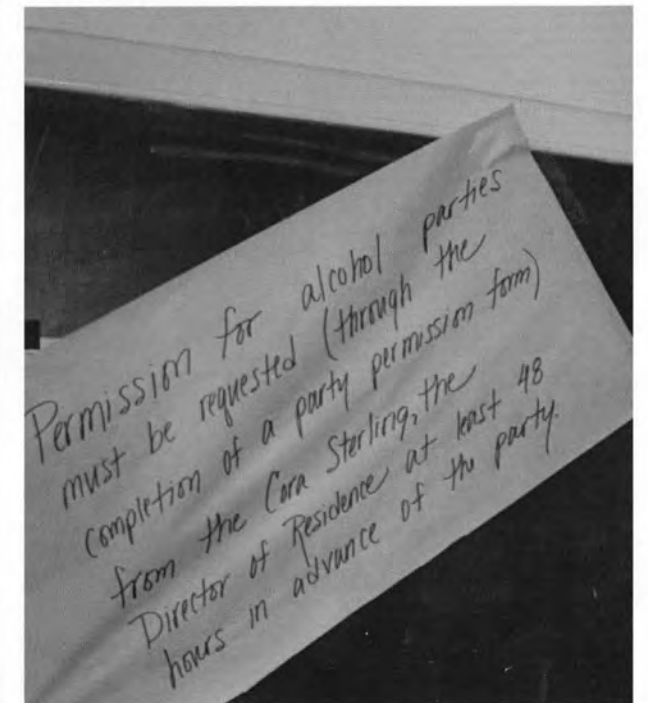 Permission for alcohol parties
must be requested (through the
completion of a party permission form)
from the Cora Sterling, the
Director of Residence at least 48
hours in advance of the party.